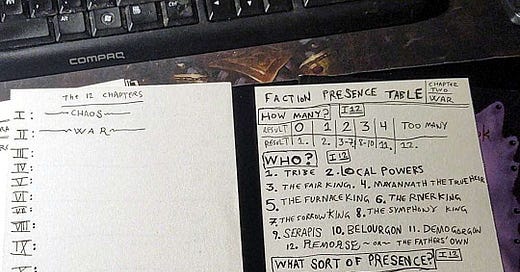 COMPAQ
The 12 CHAPTERS
I: CHAOS
II: WAR
III:
IV:
V:
VI:
VII:
VIII:
IX:
X:
FACTION PRESENCE TABLE
CHAPTER
TWO
WAR
HOW MANY? 1 12
RESULT 0 1 2 3 4 TOO MANY
RESULT 1. 2. 3-7 8-10 11. 12.
WHO? 1 12
1. TRIBE 2. LOCAL POWERS
3. THE FAIR KING. 4. MAYANNATH THE TRUE HEIR
5. THE FURNACE KING 6. THE RIVER KING
7. THE SORROW KING 8. THE SYMPHONY KING
9. SERAPIS 10. BELOURGON 11. DEMOGORGON
12. REMORSE ~OR~ THE FATHERS' OWN
WHAT SORT OF PRESENCE? 1 12